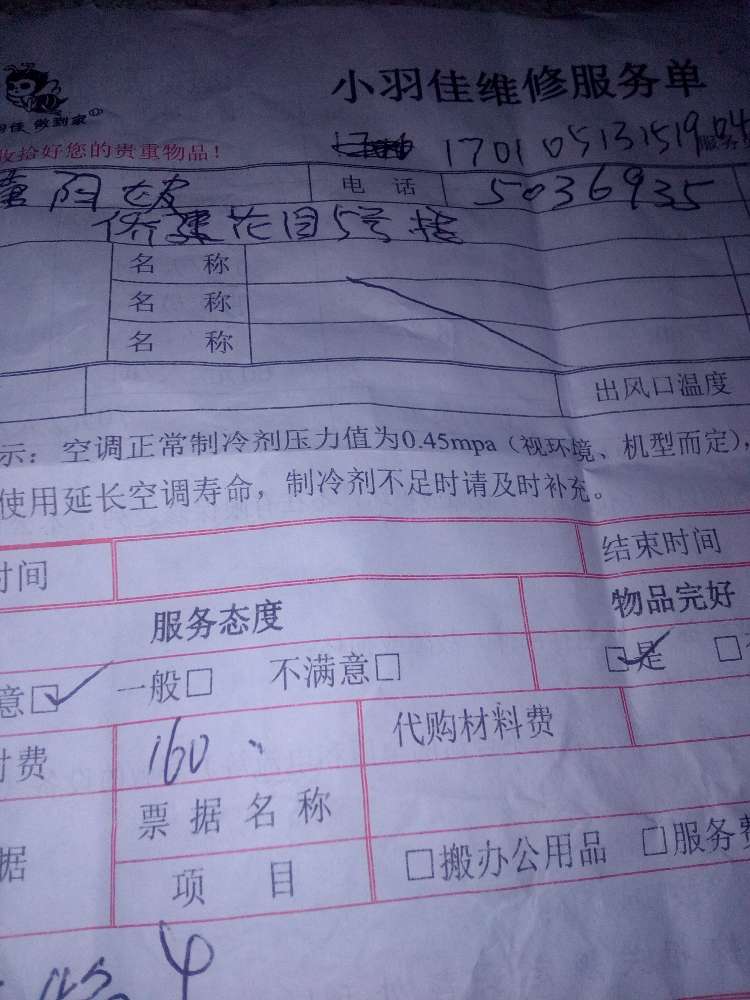 小羽佳维修服务单
佳 做到家
收拾好您的贵重物品!
17010513151904
电 话 5036935
侨建花园5号楼
名 称
名 称
名 称
出风口温度
示:空调正常制冷剂压力值为0.45mpa(视环境、机型而定),
使用延长空调寿命,制冷剂不足时请及时补充。
时间 结束时间
服务态度 物品完好
意☑ 一般□ 不满意□ ☑是 □
付费 160 代购材料费
据 票据名称
项 目 □搬办公用品 □服务费